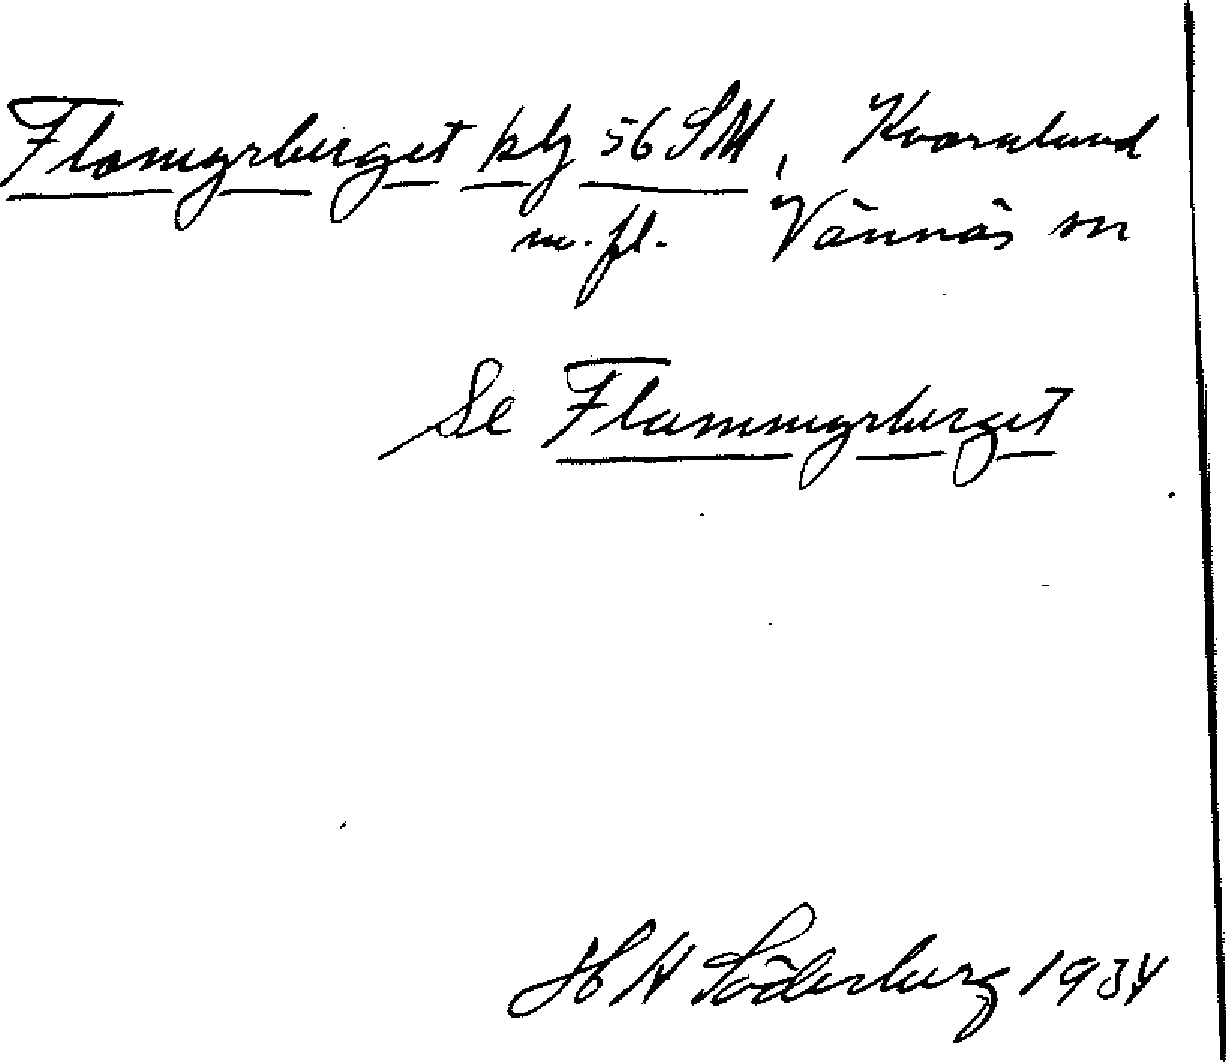 Flamyrberget plg 56 SM, Kvarnlund
m.fl. Vännäs sn
Se Flammyrberget
H H Söderberg 1934